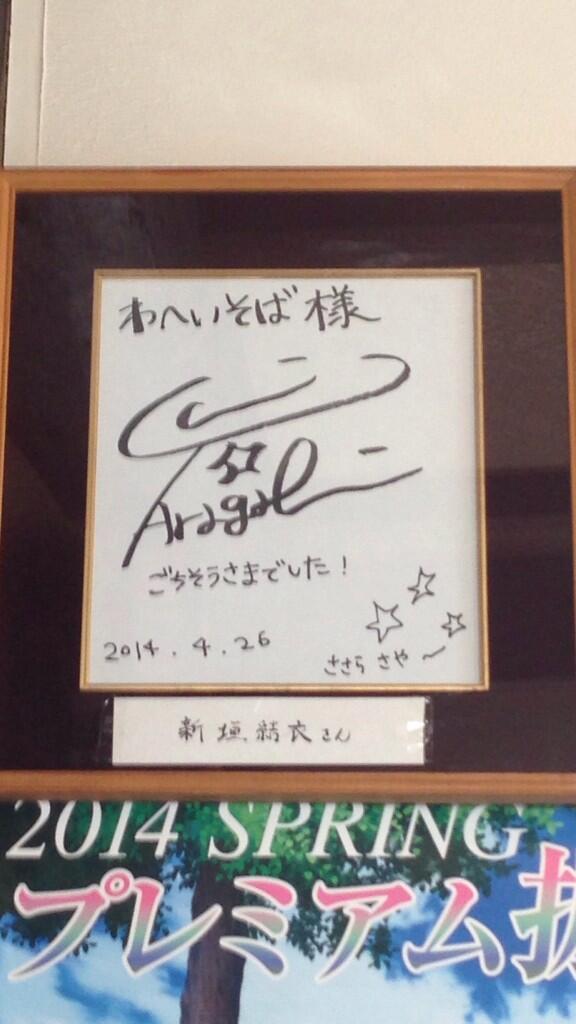 わへいそば 様
結
Aragaki
ごちそうさまでした!
2014.4.26
ささら さや〜
新垣結衣さん
2014 SPRING
プレミアム